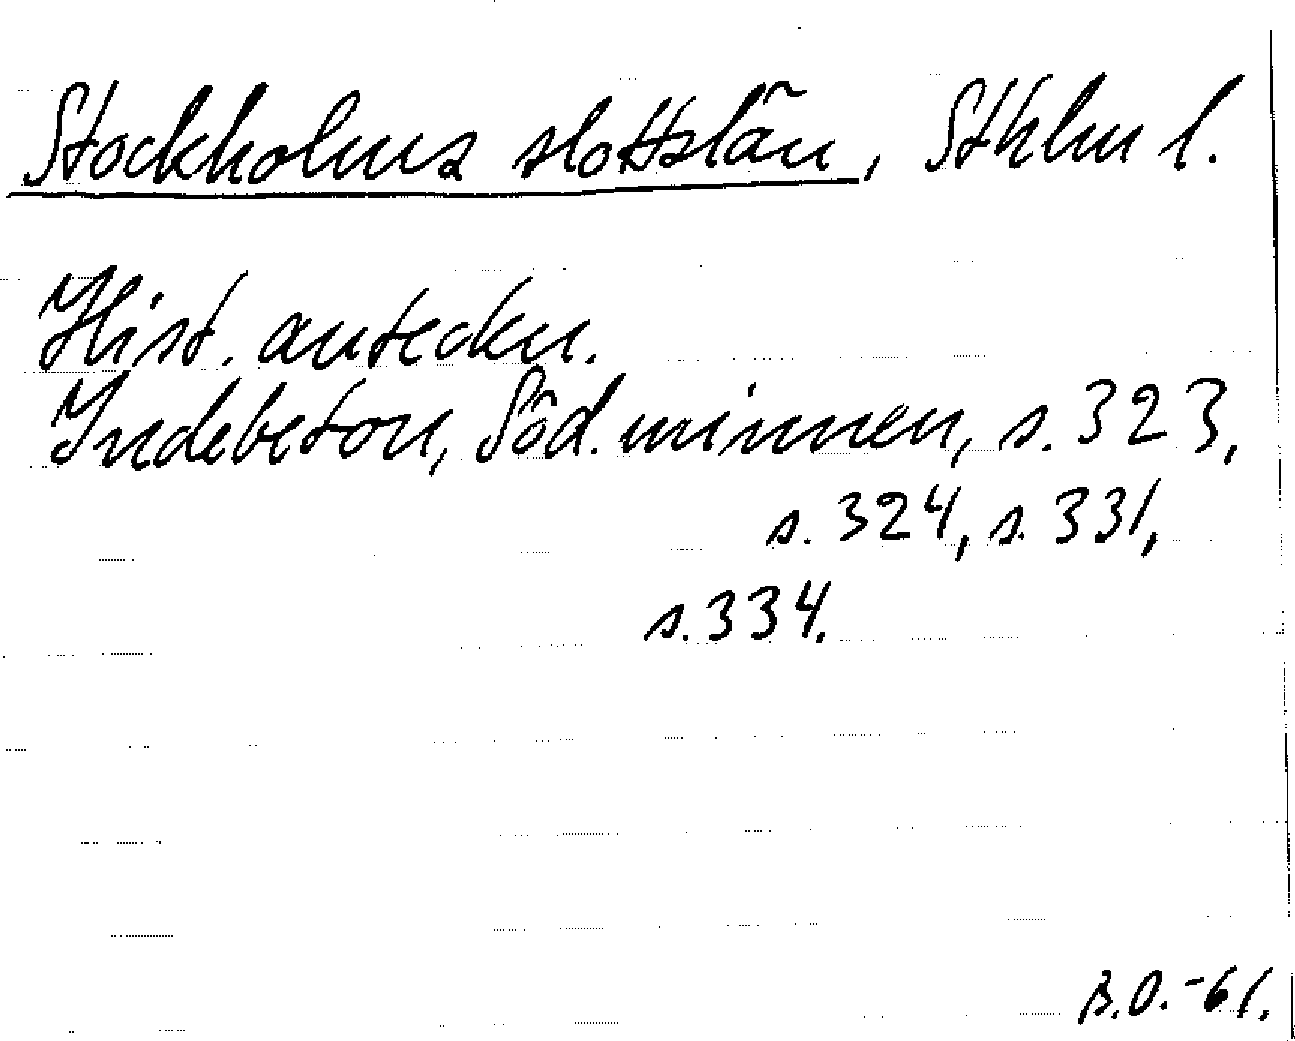 Stockholms slottslän, Sthlm l.
Hist. anteckn.
Indebetou, Söd. minnen, s. 323,
s. 324, s. 331,
s. 334.
B.O.-61.